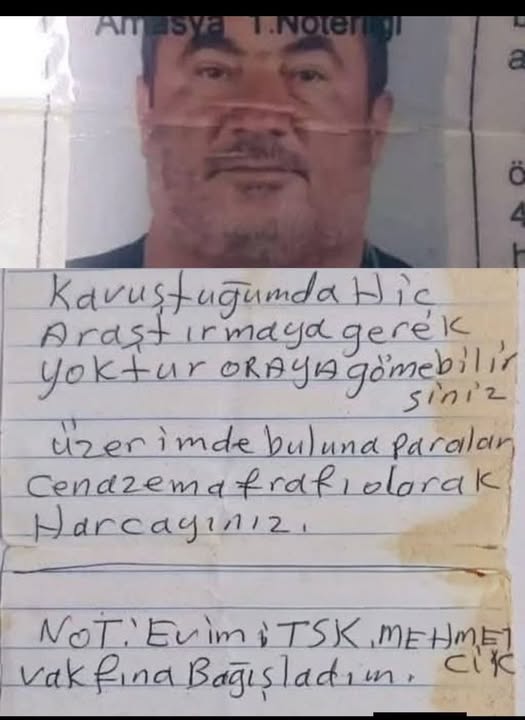 Amasya 1.Noterliği
a
ö
4
Kavuştuğumda Hiç
Araştırmaya gerek
yoktur ORAYA gömebilir
siniz
üzerimde buluna paraları
Cenazema frafı olarak
Harcayınız.
NOT: Evimi TSK. MEHMET
CİK
vakfına Bağışladım.